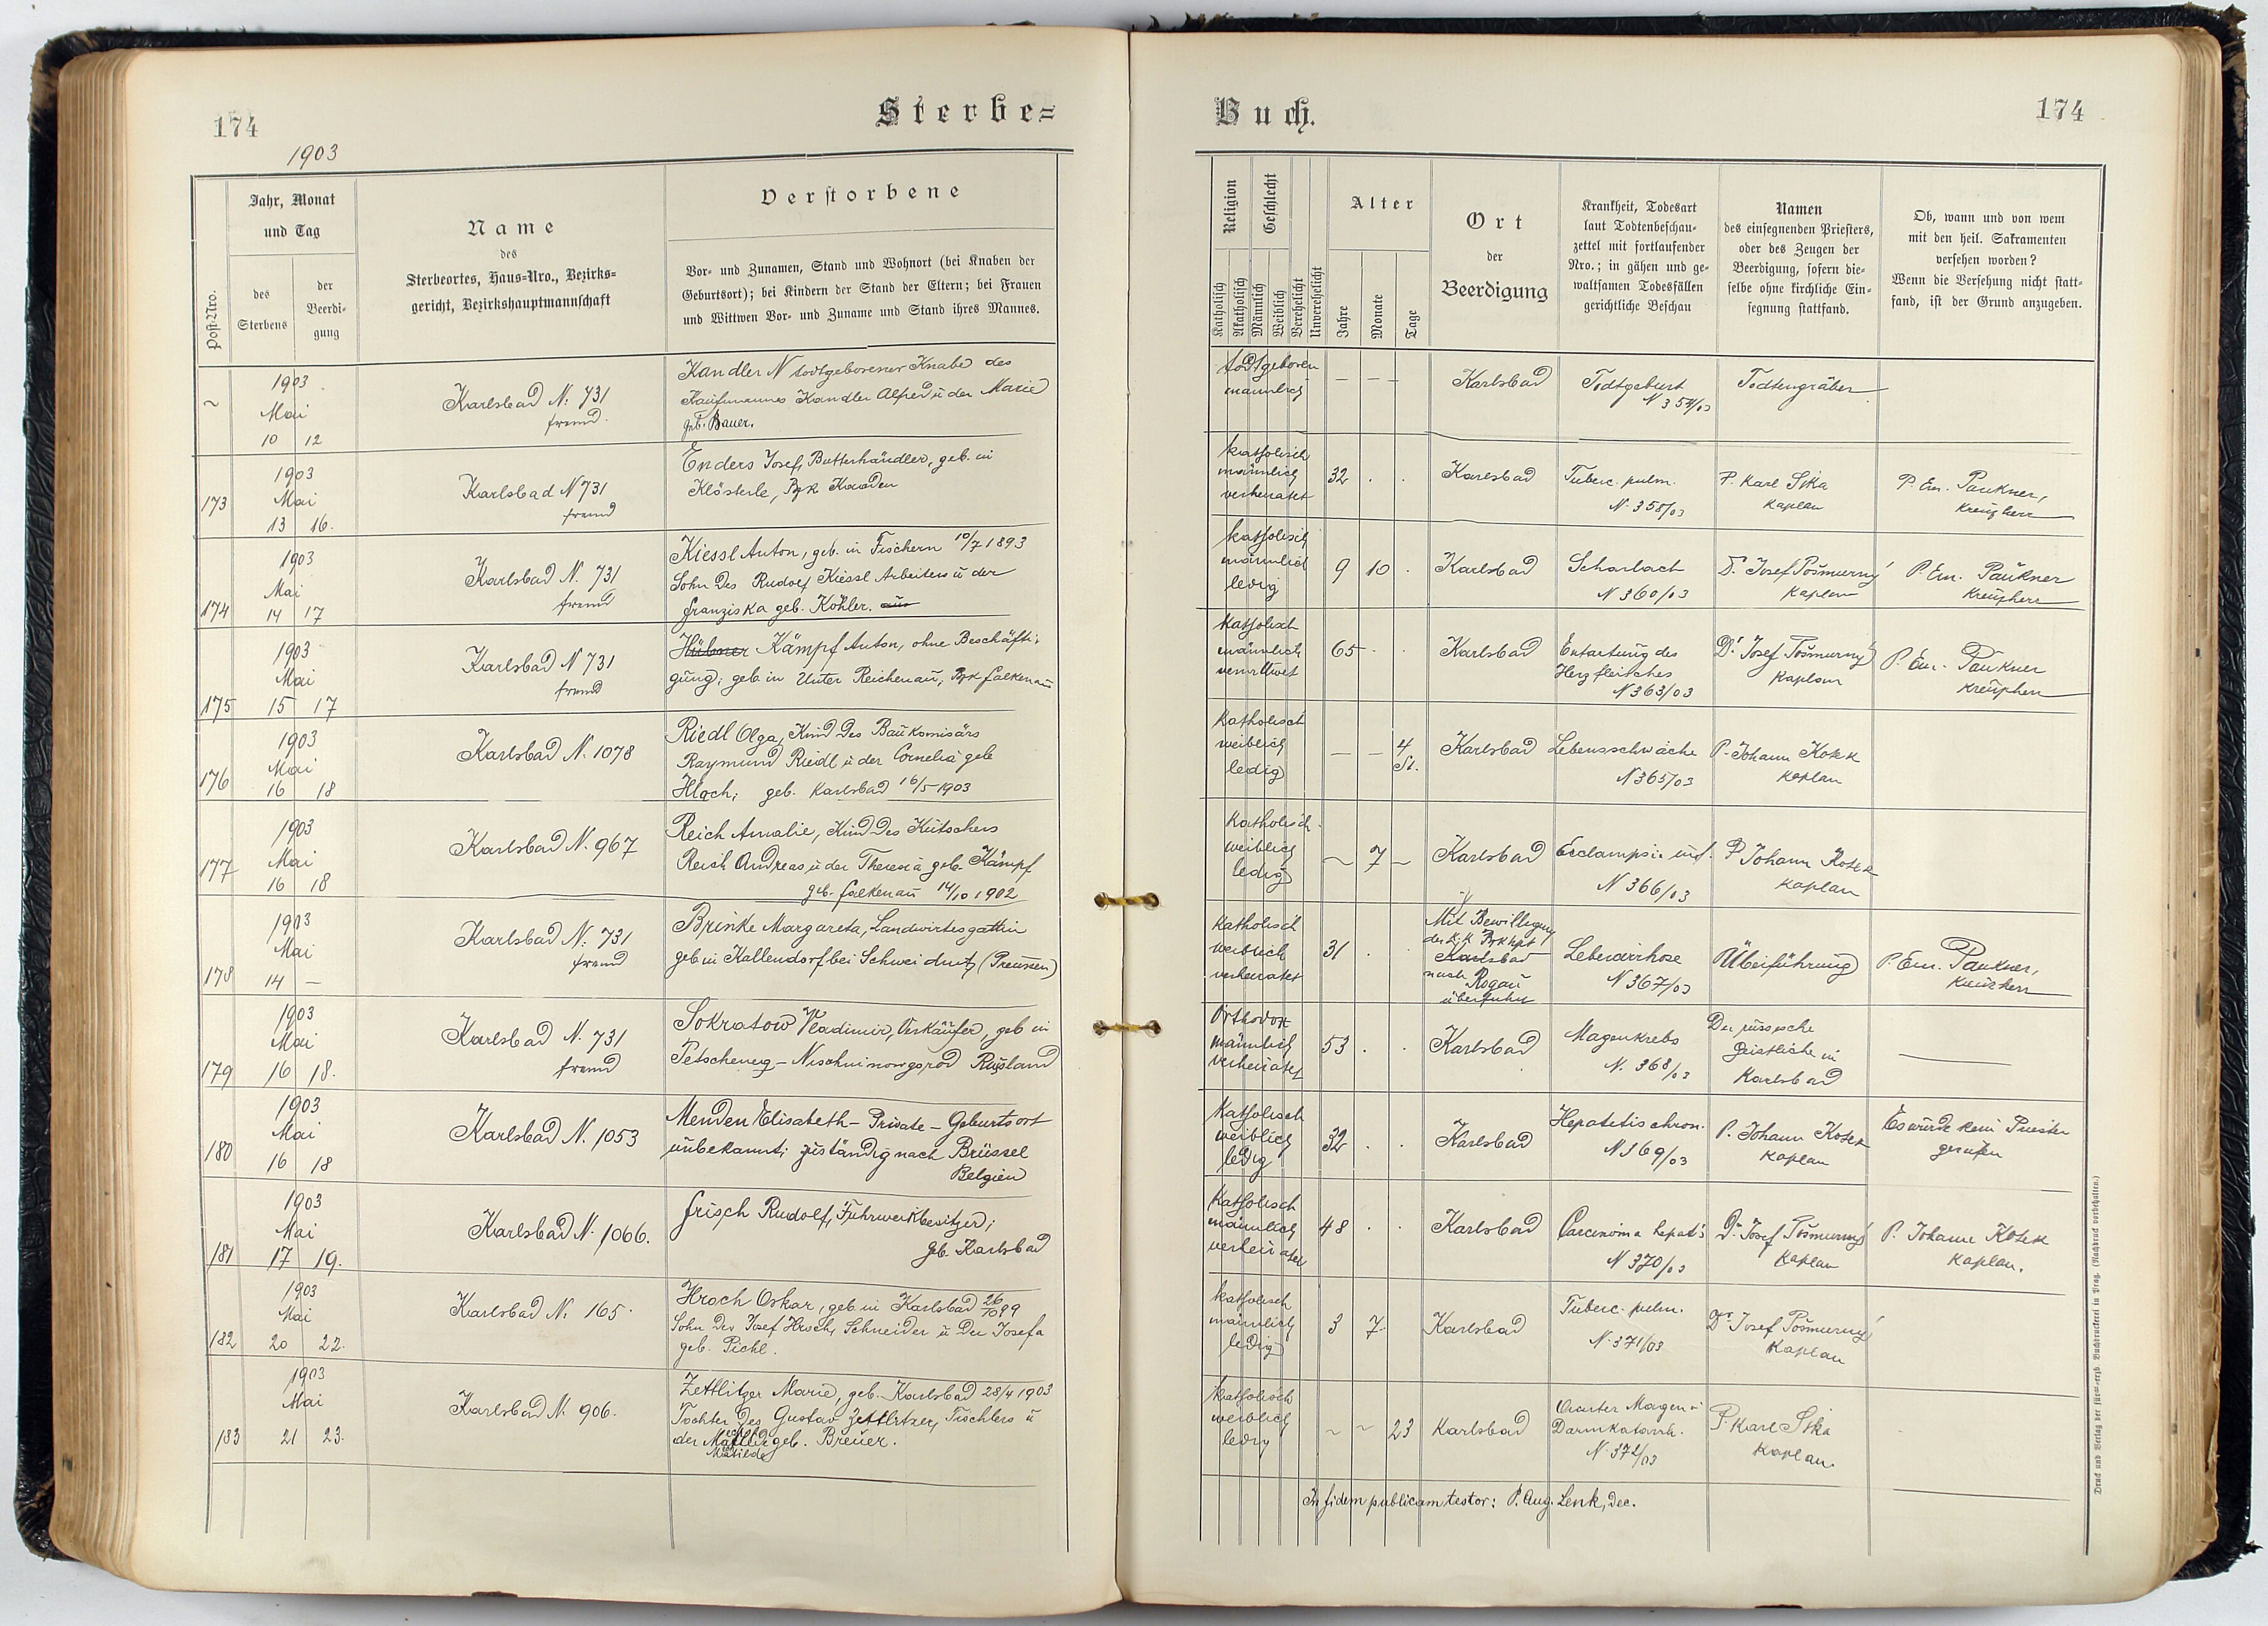 174
Sterbe=
1903
Post-Nro.
Jahr, Monat
und Tag
des
Sterbens
der
Beerdi-
gung
Name
des
Sterbeortes, Haus=Nro., Bezirks=
gericht, Bezirkshauptmannschaft
Verstorbene
Vor- und Zunamen, Stand und Wohnort (bei Knaben der
Geburtsort); bei Kindern der Stand der Eltern; bei Frauen
und Wittwen Vor- und Zuname und Stand ihres Mannes.
~
1903
Mai
10 12
Karlsbad N: 731
fremd
Kandler N todtgeborener Knabe des
Kaufmannes Kandler Alfred u der Marie
geb. Bauer.
173
1903
Mai
13 16.
Karlsbad N 731
fremd
Enders Josef, Butterhändler, geb. in
Klösterle, Bzk Kaaden
174
1903
Mai
14 17
Karlsbad N. 731
fremd
Kiessl Anton, geb. in Fischern 10/7 1893
Sohn des Rudolf Kiessl Arbeiters u der
Franziska geb. Köhler. aus
175
1903
Mai
15 17
Karlsbad N 731
fremd
Hübner Kämpf Anton, ohne Beschäfti-
gung; geb in Unter Reichenau, Bzk Falkenau
176
1903
Mai
16 18
Karlsbad N. 1078
Riedl Olga, Kind des Baukomisärs
Raymund Riedl u der Cornelia geb
Hloch; geb. Karlsbad 16/5 1903
177
1903
Mai
16 18
Karlsbad N. 967
Reich Amalie, Kind des Kutschers
Reich Andreas u der Theresia geb. Kämpf
geb. Falkenau 14/10 1902
178
1903
Mai
14 —
Karlsbad N: 731
fremd
Brinke Margareta, Landwirtesgattin
geb in Kallendorf bei Schweidnitz (Preussen)
179
1903
Mai
16 18.
Karlsbad N. 731
fremd
Sokratow Wladimir, Verkäufer, geb in
Petscherny - Nischninowgorod Russland
180
1903
Mai
16 18
Karlsbad N. 1053
Menden Elisabeth - Private - Geburtsort
unbekannt; zuständig nach Brüssel
Belgien
181
1903
Mai
17 19.
Karlsbad N. 1066.
Frisch Rudolf, Fuhrwerkbesitzer;
geb. Karlsbad
182
1903
Mai
20 22.
Karlsbad N. 165.
Hroch Oskar, geb in Karlsbad 26/10 99
Sohn des Josef Hroch, Schneider u der Josefa
geb. Pichl.
183
1903
Mai
21 23.
Karlsbad N. 906.
Zettlitzer Marie, geb. Karlsbad 28/4 1903
Tochter des Gustav Zettlitzer, Tischlers u
der geb. Breuer.
Matilde
Buch.
174
Religion
Geschlecht
Katholisch
Akatholisch
Männlich
Weiblich
Verehelicht
Unverehelicht
Alter
Jahre
Monate
Tage
Ort
der
Beerdigung
Krankheit, Todesart
laut Todtenbeschau-
zettel mit fortlaufender
Nro.; in gähen und ge-
waltsamen Todesfällen
gerichtliche Beschau
Namen
des einsegnenden Priesters,
oder des Zeugen der
Beerdigung, sofern die-
selbe ohne kirchliche Ein-
segnung stattfand.
Ob, wann und von wem
mit den heil. Sakramenten
versehen worden?
Wenn die Versehung nicht statt-
fand, ist der Grund anzugeben.
todtgeboren
männlich
— — —
Karlsbad
Todtgeburt
N 354/03
Todtengräber
katholisch
männlich
verheiratet
32 . .
Karlsbad
Tuberc. pulm.
N. 358/03
P. Karl Sika
Kaplan
P. Em. Paukner,
Kreuzherr
katholisch
männlich
ledig
9 10 .
Karlsbad
Scharlach
N 360/03
Dr. Josef Pošmurný
Kaplan
P. Em. Paukner
Kreuzherr
katholisch
männlich
verwittwet
65 . .
Karlsbad
Entartung des
Herzfleisches
N 363/03
Dr. Josef Pošmurný
Kaplan
P. Em. Paukner
Kreuzherr
Katholisch
weiblich
ledig
— — 4
St.
Karlsbad
Lebensschwäche
N 365/03
P. Johann Kosek
Kaplan
Katholisch
weiblich
ledig
~ 7 ~
Karlsbad
Eclampsie inf.
N 366/03
P Johann Kosek
Kaplan
Katholisch
weiblich
verheiratet
31 . .
Mit Bewilligung
der k. k. Bzk hpt
Karlsbad
nach Rogau
überführt
Lebercirrhose
N 367/03
Überführung
P. Em. Paukner,
Kreuzherr
Orthodox
männlich
verheiratet
53 . .
Karlsbad
Magenkrebs
N. 368/03
Der russische
Geistliche in
Karlsbad
—
Katholisch
weiblich
ledig
32 . .
Karlsbad
Hepatitis chron.
N 369/03
P. Johann Kosek
Kaplan
Es wurde kein Priester
gerufen
Katholisch
männlich
verheiratet
48 . .
Karlsbad
Carcinoma hepatis
N 370/03
Dr. Josef Pošmurný
Kaplan
P. Johann Kosek
Kaplan.
katholisch
männlich
ledig
3 7
Karlsbad
Tuberc. pulm.
N. 371/03
Dr Josef Pošmurný
Kaplan
Katholisch
weiblich
ledig
~ ~ 23
Karlsbad
Acuter Magen u
Darmkatarrh.
N. 372/03
P. Karl Sika
Kaplan
In fidem publicam testor: P. Aug. Lenk, Dec.
Druck und Verlag der fürst-erzb. Buchdruckerei in Prag. (Nachdruck vorbehalten.)